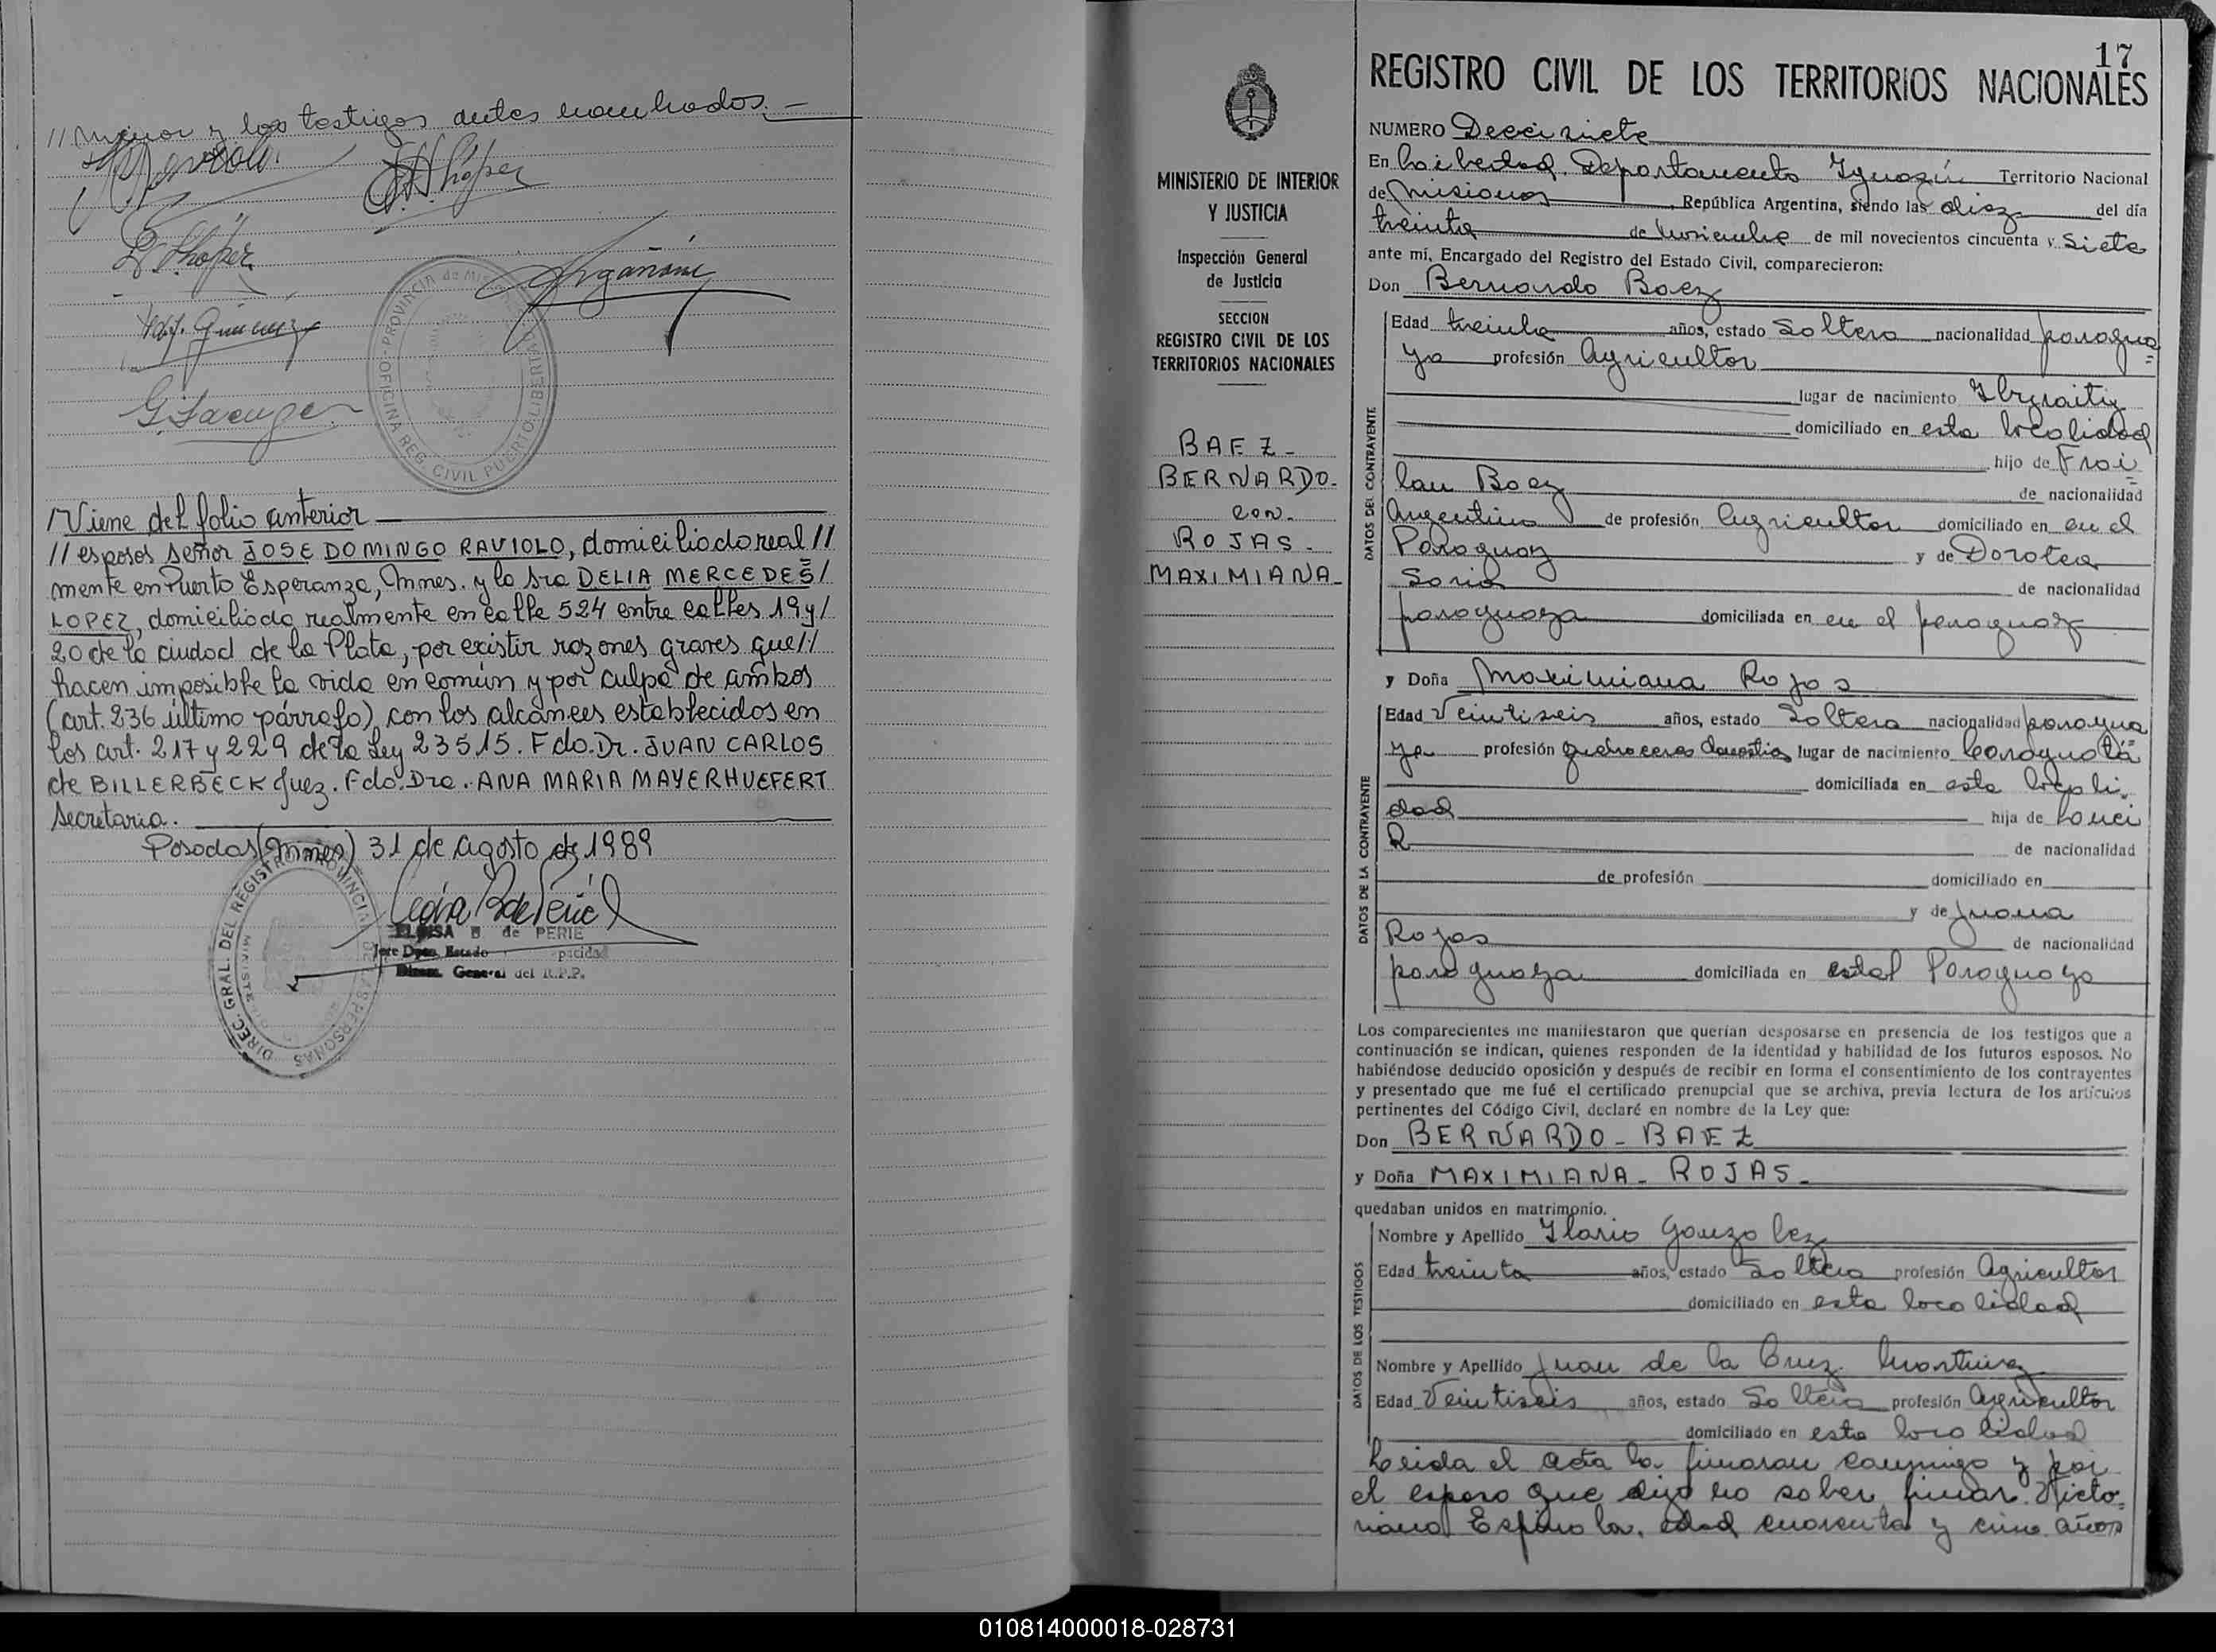 // menor y los testigos antes nombrados. —
Viene del folio anterior
// esposos señor JOSE DOMINGO RAVIOLO, domiciliado real //
mente en Puerto Esperanza, Mnes. y la Sra DELIA MERCEDES /
LOPEZ, domiciliada realmente en calle 524 entre calles 19 y /
20 de la ciudad de la Plata, por existir razones graves que //
hacen imposible la vida en común y por culpa de ambos
(art. 236 último párrafo), con los alcances establecidos en
los art. 217 y 229 de la Ley 23515. Fdo. Dr. JUAN CARLOS
de BILLERBECK Juez. Fdo. Dra. ANA MARIA MAYERHUEFERT
Secretaria.
Posadas (Mnes) 31 de agosto de 1989
ELOISA B de PERIE
Jefe Dpto. Estado
Direcc. General del R.P.P.
OFICINA REG. CIVIL PUERTO LIBERTAD
PROVINCIA de
DIREC. GRAL. DEL REGISTRO PROVINCIAL DE LAS PERSONAS
MINISTE
MINISTERIO DE INTERIOR
Y JUSTICIA
Inspección General
de Justicia
SECCION
REGISTRO CIVIL DE LOS
TERRITORIOS NACIONALES
BAEZ -
BERNARDO -
con -
ROJAS -
MAXIMIANA -
17
REGISTRO CIVIL DE LOS TERRITORIOS NACIONALES
NUMERO Diecisiete
En Libertad. Departamento Iguazú Territorio Nacional
de Misiones, República Argentina, siendo las diez del día
treinta de Noviembre de mil novecientos cincuenta y Siete
ante mí, Encargado del Registro del Estado Civil, comparecieron:
Don Bernardo Baez
DATOS DEL CONTRAYENTE
Edad treinta años, estado Soltero nacionalidad paragua=
ya profesión Agricultor
lugar de nacimiento Ybyraity
domiciliado en esta localidad
hijo de Froi=
lan Baez de nacionalidad
Argentino de profesión Agricultor domiciliado en en el
Paraguay y de Dorotea
Soria de nacionalidad
paraguaya domiciliada en en el paraguay
y Doña Maximiana Rojas
DATOS DE LA CONTRAYENTE
Edad Veintiseis años, estado Soltera nacionalidad paragua=
ya profesión quehaceres domestic lugar de nacimiento Caraguatá
domiciliada en esta locali-
dad hija de
de nacionalidad
de profesión domiciliado en
y de Juana
Rojas de nacionalidad
paraguaya domiciliada en Paraguaya
Los comparecientes me manifestaron que querían desposarse en presencia de los testigos que a
continuación se indican, quienes responden de la identidad y habilidad de los futuros esposos. No
habiéndose deducido oposición y después de recibir en forma el consentimiento de los contrayentes
y presentado que me fué el certificado prenupcial que se archiva, previa lectura de los artículos
pertinentes del Código Civil, declaré en nombre de la Ley que:
Don BERNARDO - BAEZ
y Doña MAXIMIANA - ROJAS -
quedaban unidos en matrimonio.
DATOS DE LOS TESTIGOS
Nombre y Apellido Ilario Gonzalez
Edad treinta años, estado Soltero profesión Agricultor
domiciliado en esta localidad
Nombre y Apellido Juan de la Cruz Martinez
Edad Veintiseis años, estado Soltero profesión Agricultor
domiciliado en esta localidad
Leida el acta la firmaran conmigo y por
el esposo que dijo no saber firmar. Victo=
riano Espinola, edad cuarenta y cinco años
010814000018-028731